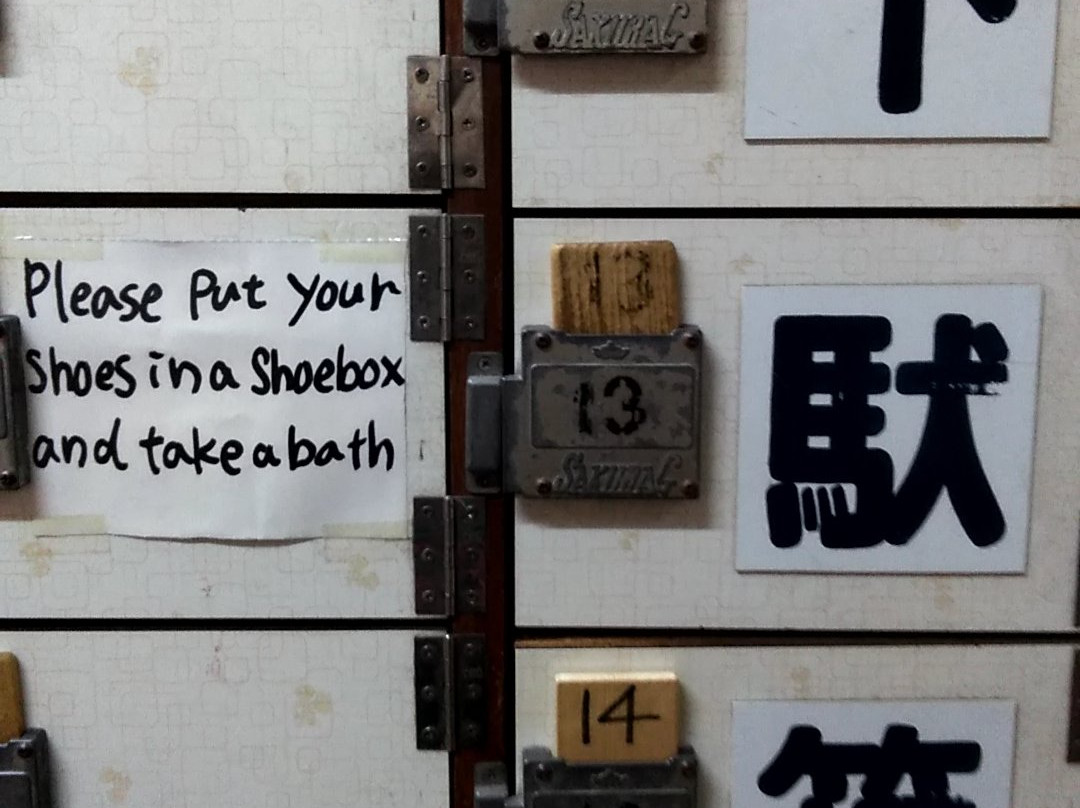 SAKURA C
下
Please Put your
shoes in a Shoebox
and take a bath
13
13
SAKURA C
駄
14